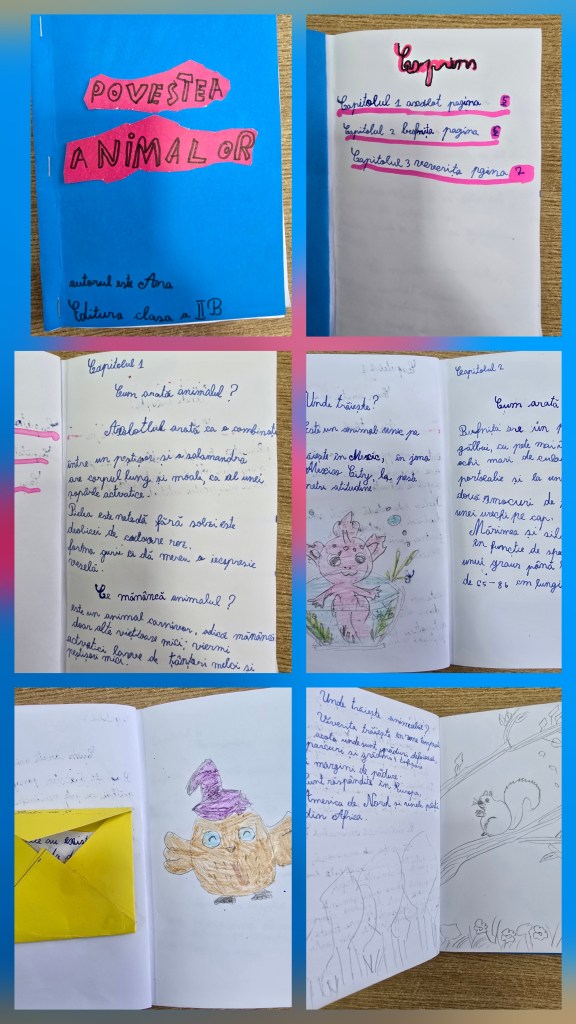 POVESTEA
ANIMALOR
autorul este Ana
Editura clasa a II B
Cuprins
Capitolul 1 axolot pagina
Capitolul 2 bufnița pagina
Capitolul 3 veverița pgina 7
Capitolul 1
Cum arată animalul?
Axolotlul arată ca o combinație
între un peștișor și o salamandră
are corpul lung și moale, ca al unei
șopârle acvatice.
Pielea este netedă fără solzi este
deobicei de coloare roz.
forma gurii ca dă mereu o
veselă.
Ce mănâncă animalul?
este un animal carnivor, adică mănâncă
doar alte viețuoare mici: viermi
acvatici larve de țânțari melci și
peștișori mici.
Unde trăiește?
Este un animal
trăiește în Mexic, în
Mexico City, la peste
metri altitudine
Capitolul 2
Cum arată
Bufnița are în p
gălbui, cu pete mai
ochi mari de culoa
portocalie și la un
două smocuri de
unei urechi pe cap.
Mărimea și sil
în funcție de spe
unui graur până
de 65-86 cm lungi
Unde trăiește animalul?
Viverița trăiește în
acolo unde sunt păduri
parcuri și grădini
margini de pădure.
Sunt răspândite în Europa,
America de Nord și unele părți
din Africa.